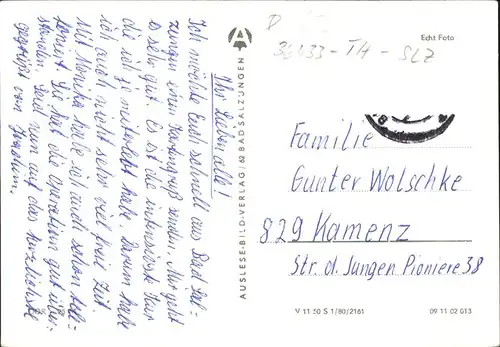 Ihr Lieben alle!
Ich möchte Euch schnell aus Bad Sal-
zungen einen Kartengruß senden. Mir geht
es sehr gut. Es ist die intensivste Kur
die ich je miterlebt habe. Darum habe
ich auch nicht sehr viel freie Zeit.
Mit Monika habe ich auch schon tele-
foniert. Sie hat die Operation gut über-
standen. Seid nun auf das herzlichste
gegrüßt von
AUSLESE-BILD-VERLAG / 62 BAD SALZUNGEN
D
36433-TH-SLZ
Echt Foto
Familie
Günter Wolschke
829 Kamenz
Str. d. Jungen Pioniere 38
V 11 50 S 1/80/2161
09 11 02 013